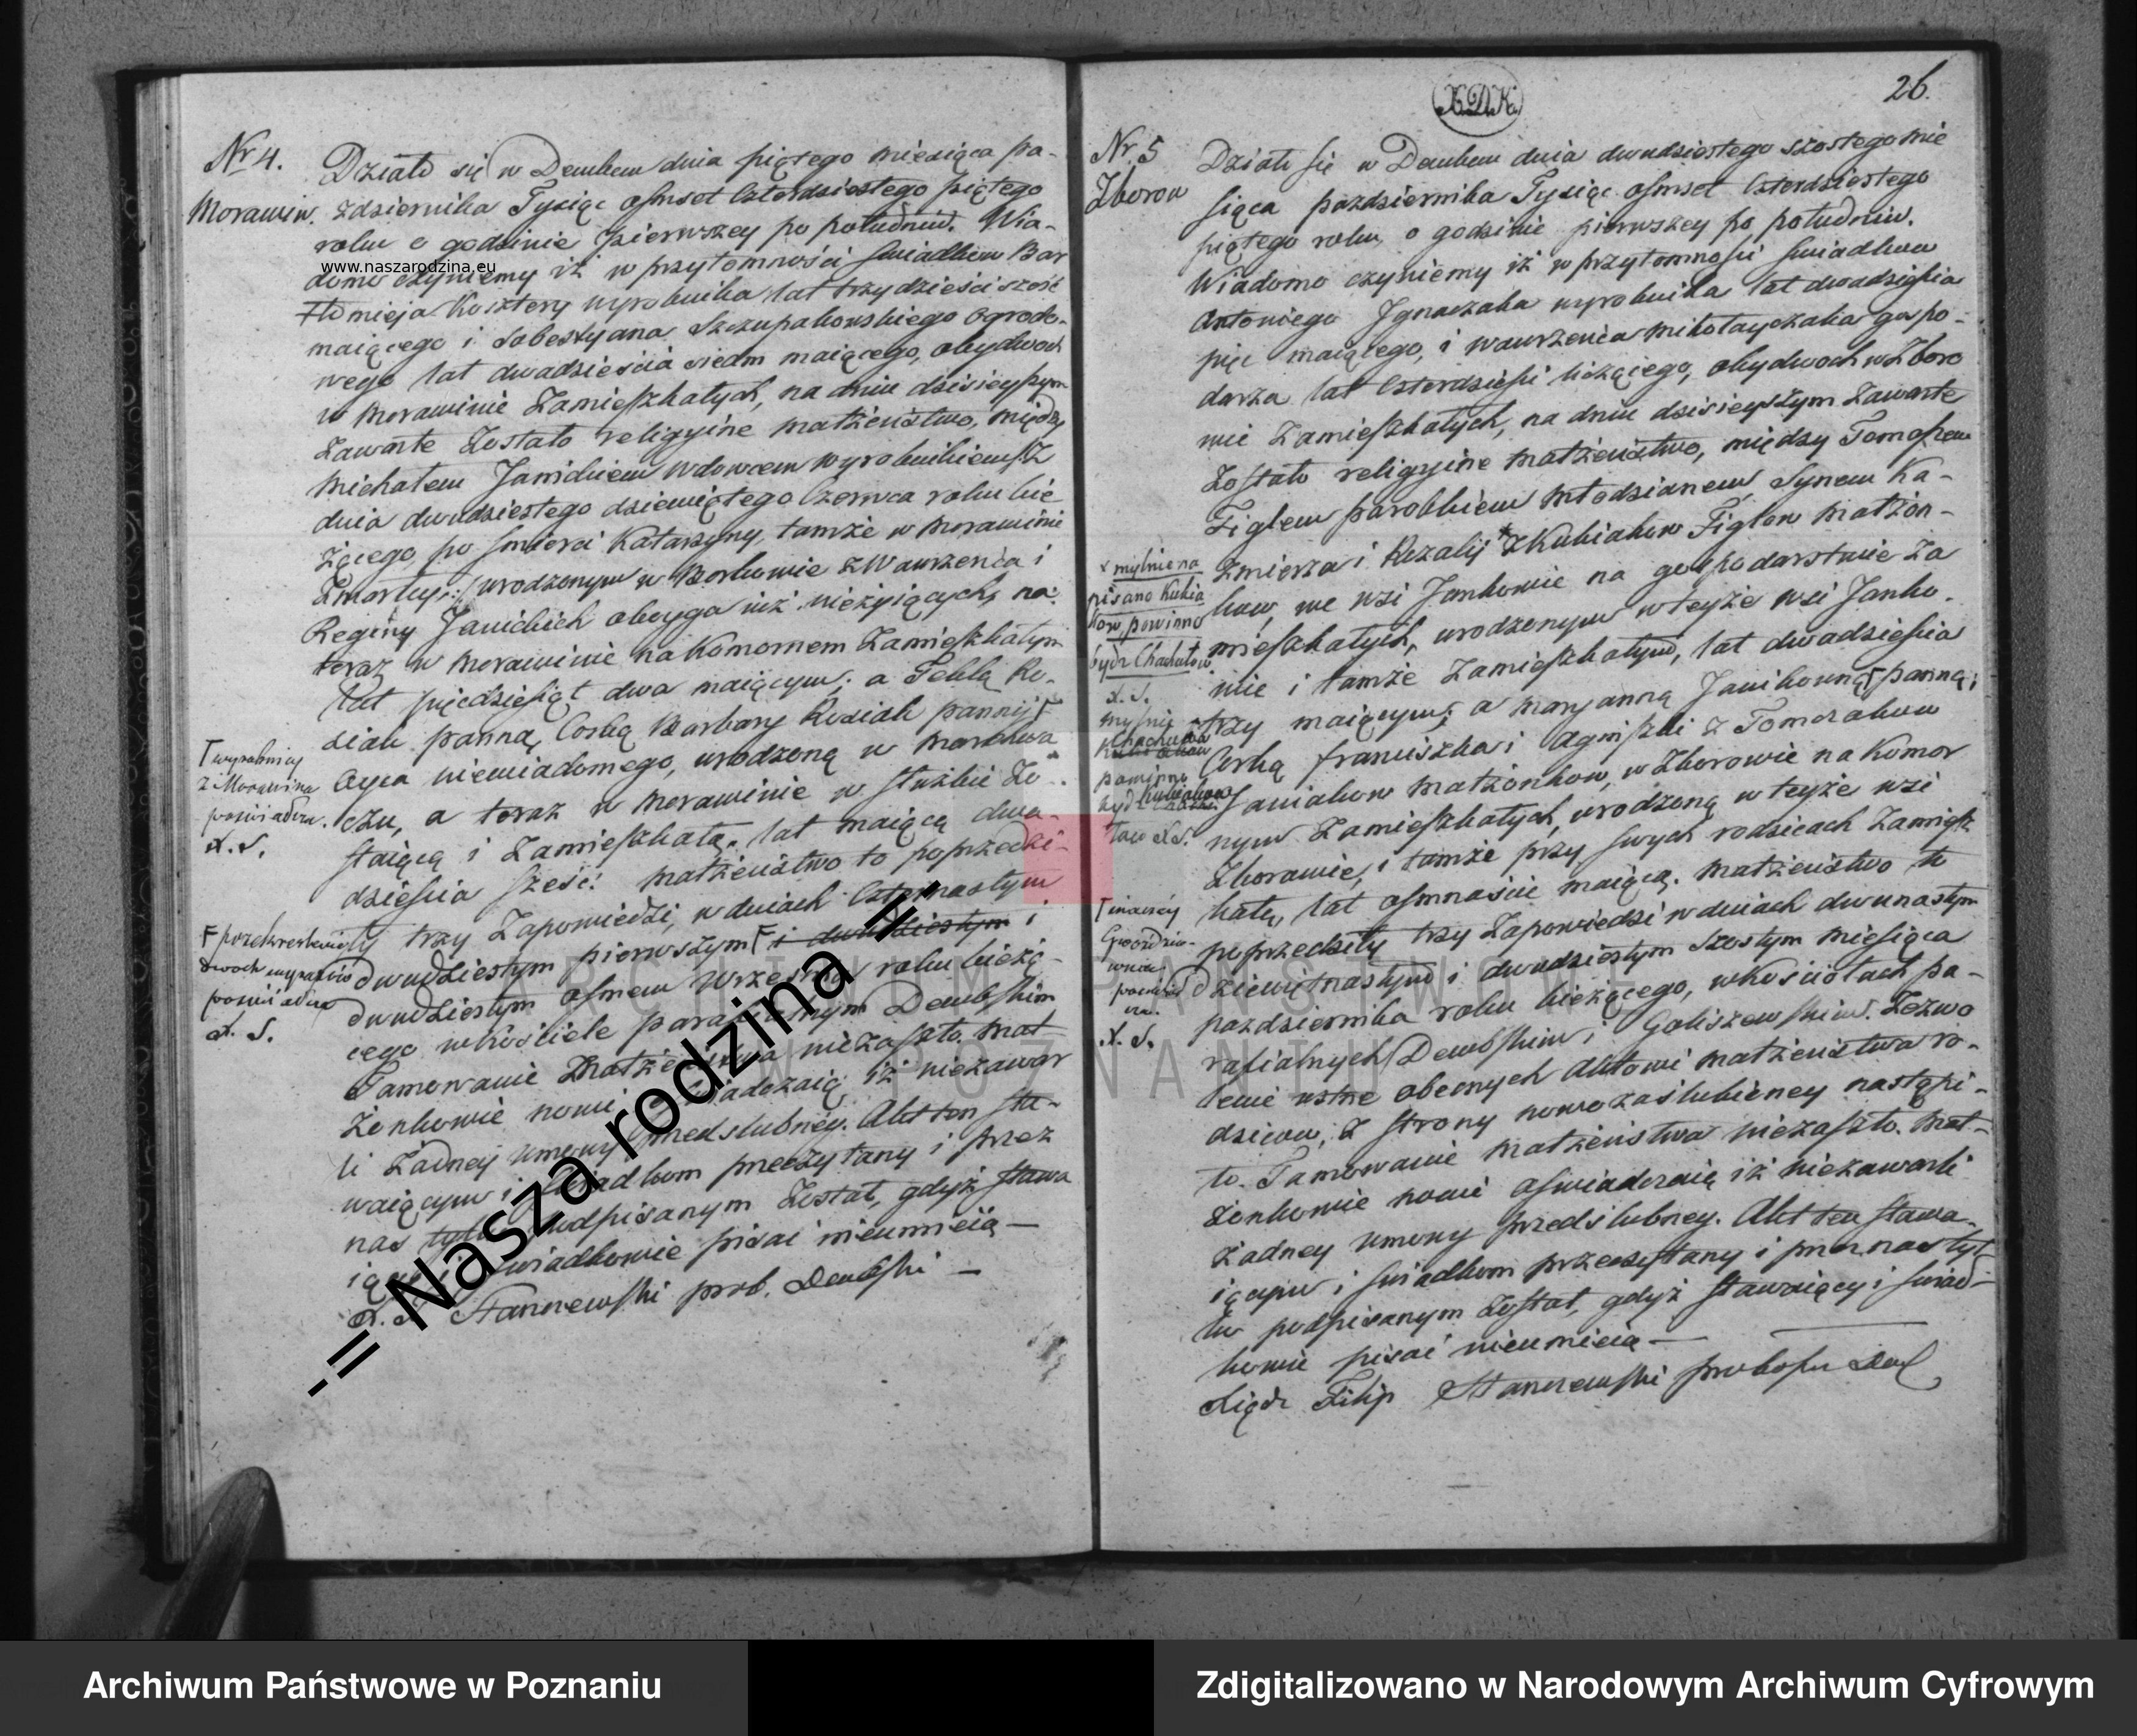 Nr 4.
Morawin.
Działo się w Dembem dnia piątego miesiąca pa-
zdziernika Tysiąc osmset Czterdziestego piątego
roku o godzinie pierwszey po południu. Wia-
domo czyniemy iż w przytomności swiadkow Bar
tłomieja Kosztery wyrobnika lat trzydzieści szość
maiącego i Sobestyana Szczupakowskiego ogrodo-
wego lat dwadzieścia siedm maiącego, obydwoch
w Morawinie Zamieszkałych, na dniu dzisieyszym
Zawarte Zostało religyine małżeństwo, między
Michałem Janickiem wdowcem wyrobnikiem Z
dnia dwudziestego dziewiątego Czerwca roku bie
żącego, po śmierci Katarzyny, tamże w Morawinie
Zmarłey; urodzonym w Borkowie z Wawrzeńca i
Reginy Janickich oboyga iuż nieżyiących, na
teraz w Morawinie na Komornem Zamieszkałym
lat pięćdziesiąt dwa maiącym; a Teklą Ro-
siak panną, Corką Barbary Rosiak panny Г
Oyca niewiadomego, urodzoną w
czu, a teraz w Morawinie w służbie Zo-
staiącą i Zamieszkałą, lat maiącą dwa-
dzieścia sześć. Małżeństwo to poprzedzi-
ły trzy Zapowiedzi, w dniach Czternastym
dwudziestym pierwszym F i dwudziestym i
dwudziestym osmem Września roku bieżą-
cego w kościele parafialnym Dembskim
Tamowanie Małżeństwa niezaszło. Mał-
żonkowie nowi oświadczaią iż niezawar
li Żadney umowy przedslubney. Akt ten sta-
waiącym i Swiadkom przeczytany i przez
nas tylko podpisanym Został, gdyż stawa
iący i Swiadkowie pisać nieumieią —
X. F. Stanczewski prob. Dembski —
Г wyrobnicy
z Morawina
poświadcza.
X. S.
F przekreslenie
dwoch wyrazow
poświadcza
X. S.
X.D.K.
26.
Nr. 5
Zborow
Działo się w Dembem dnia dwudziestego szostego mie
siąca pazdziernika Tysiąc osmset Czterdziestego
piątego roku, o godzinie pierwszey po południu.
Wiadomo czyniemy iż w przytomności swiadkow
Antoniego Ignaczaka wyrobnika lat dwadzieścia
pięć maiącego, i wawrzeńca Mikołayczaka gospo-
darza lat Czterdzieści liczącego, obydwoch w Zboro
wie Zamieszkałych, na dniu dzisieyszym Zawarte
Zostało religyine małżeństwo, między Tomaszem
Figlem parobkiem Młodzianem, Synem Ka-
zmierza i Rozalij * z Kubiakow Figlow małżon-
kow, we wsi Jankowie na gospodarstwie Za
mieszkałych, urodzonym w teyże wsi Janko-
wie i tamże Zamieszkałym, lat dwadzieścia
trzy maiącym; a Maryanną Janikowną Г panną,
Corką franciszka i Agniszki z Tomczakow
Janiakow małżonkow, w Zborowie na Komor
nym Zamieszkałych, urodzoną w teyże wsi
Zborowie, i tamże przy swych rodzicach Zamiesz
kałą, lat osmnaście maiącą. Małżeństwo to
poprzedziły trzy Zapowiedzi w dniach dwunastym
dziewiętnastym i dwudziestym szostym miesiąca
pazdziernika roku bieżącego, w kościołach pa-
rafialnych Dembskim i Goliszewskim. Zezwo
lenie ustne obecnych Aktowi małżeństwa ro-
dzicow, z strony nowo zaślubioney nastąpi-
ło. Tamowanie małżeństwa niezaszło. Mał-
żonkowie nowi oświadczaią iż niezawarli
Żadney umowy przedślubney. Akt ten stawa-
iącym i swiadkom przeczytany i przez nas tyl
ko podpisanym Został, gdyż stawaiący i swiad-
kowie pisać nieumieią —
Xiądz Filip Stanczewski proboszcz Dem
x mylnie na
pisano Kubia
kow powinno
bydz Chachułow
X. S.
mylnie
powinno
X. S.
Г inaczey
X. S.
www.naszarodzina.eu
-= Nasza rodzina =-
ARCHIWUM PAŃSTWOWE
W POZNANIU
Archiwum Państwowe w Poznaniu
Zdigitalizowano w Narodowym Archiwum Cyfrowym